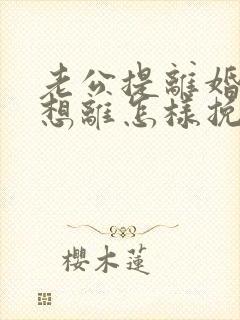 老公提離婚
想離怎樣挽
櫻木蓮